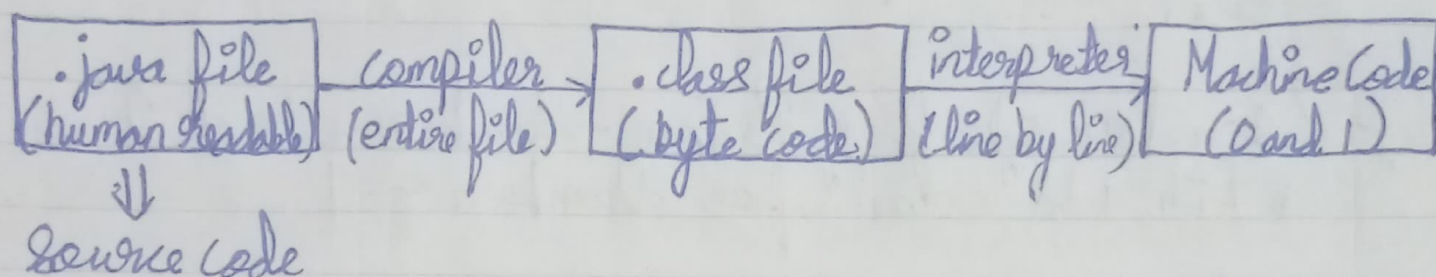 .java file
(human readable)
compiler
(entire file)
.class file
(byte code)
interpreter
(line by line)
Machine Code
(0 and 1)
Source code